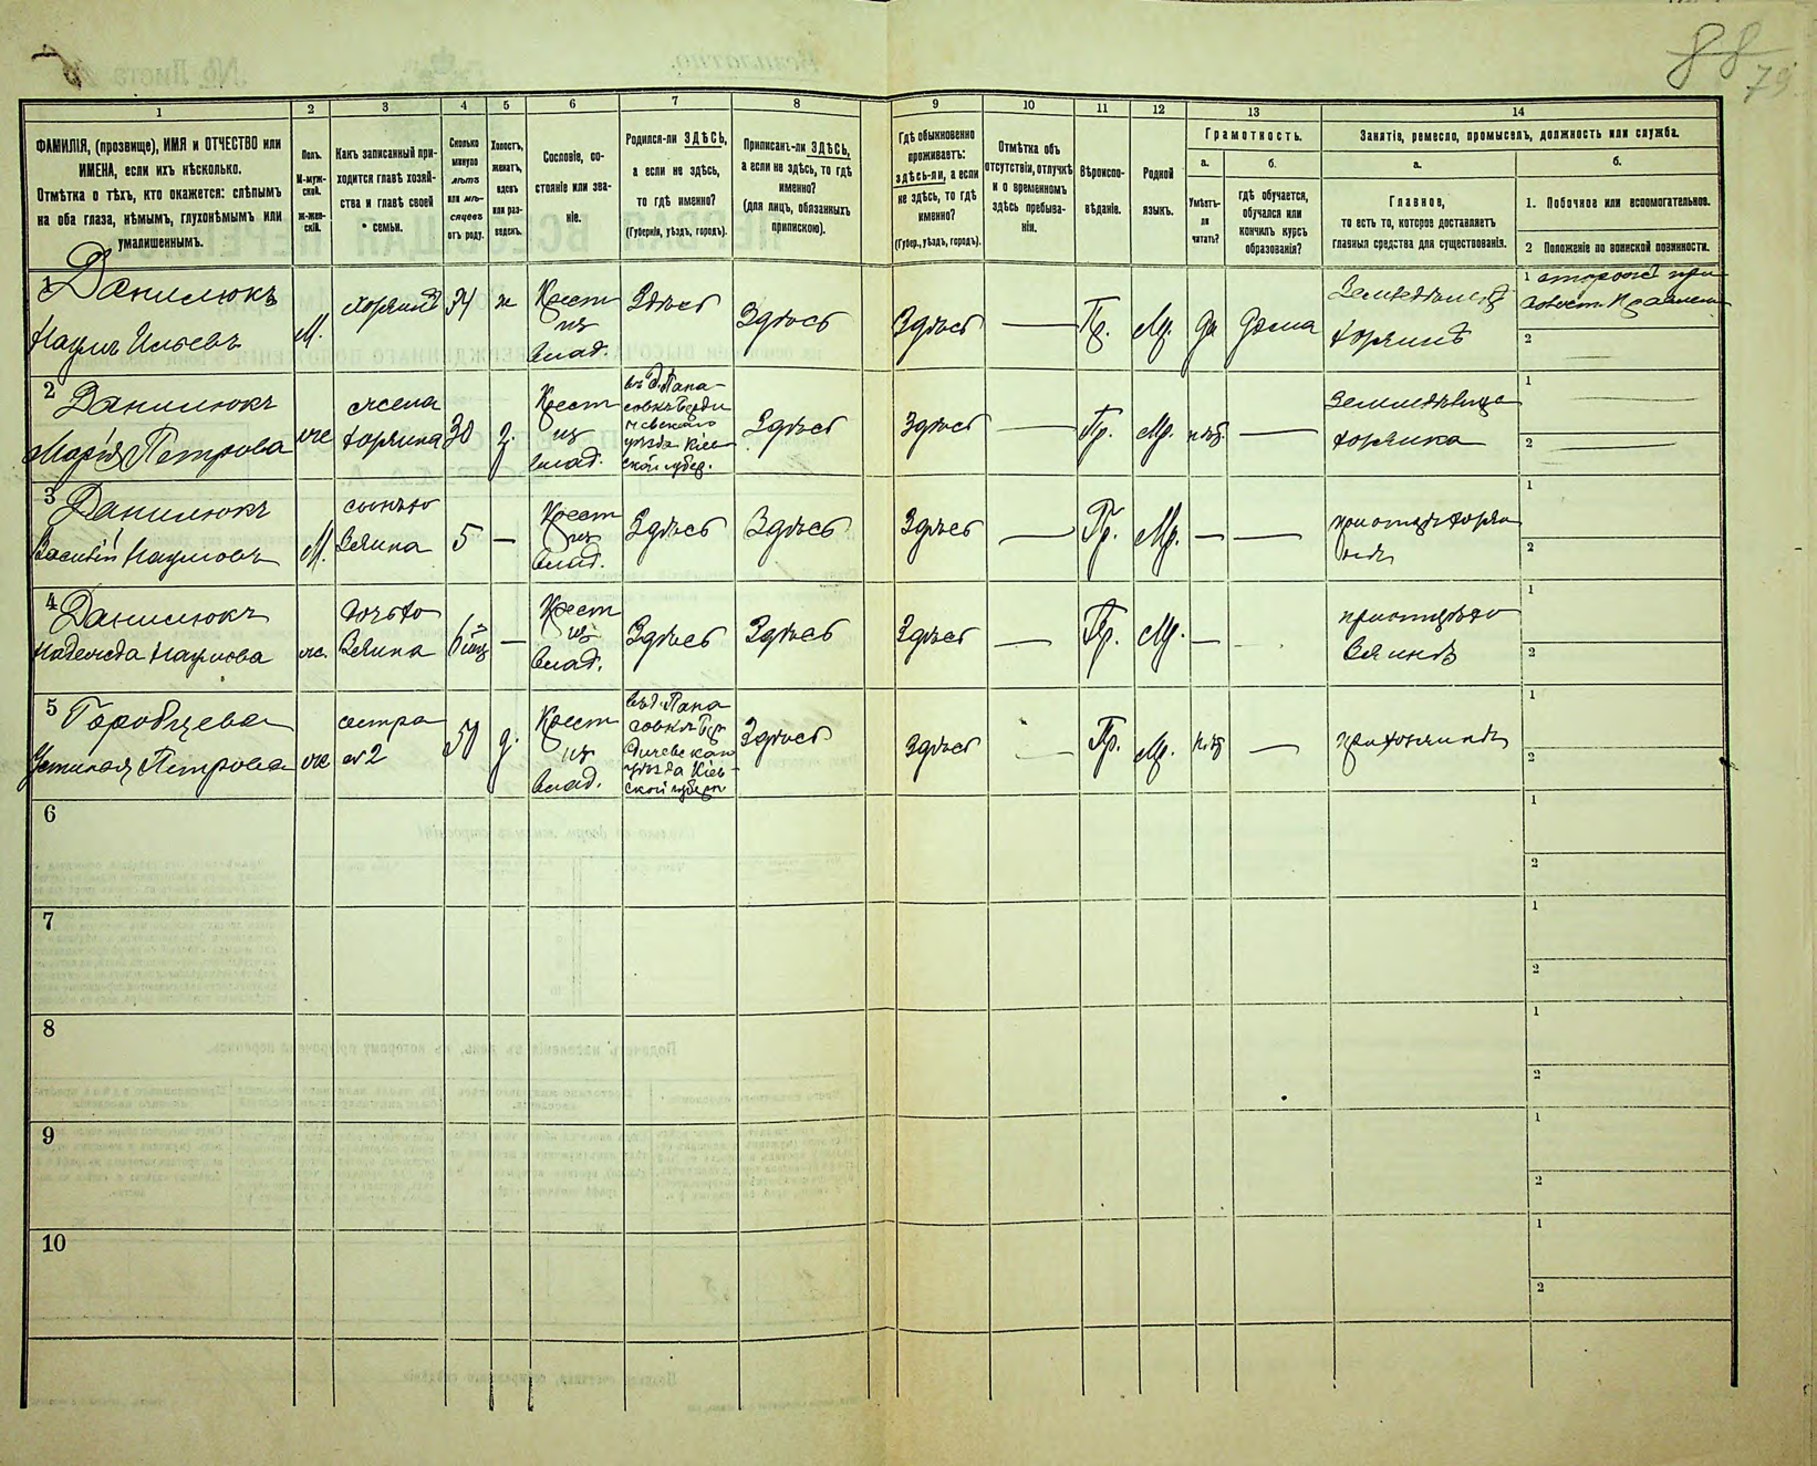 88
79
1
2
3
4
5
6
7
8
9
10
11
12
13
14
ФАМИЛІЯ, (прозвище), ИМЯ и ОТЧЕСТВО или
ИМЕНА, если ихъ нѣсколько.
Отмѣтка о тѣхъ, кто окажется: слѣпымъ
на оба глаза, нѣмымъ, глухонѣмымъ или
умалишеннымъ.
Полъ.
М-муж-
ской.
Ж-жен-
скій.
Какъ записанный при-
ходится главѣ хозяй-
ства и главѣ своей
семьи.
Сколько
минуло
лѣтъ
или мѣ-
сяцевъ
отъ роду.
Холостъ,
женатъ,
вдовъ
или раз-
веденъ.
Сословіе, со-
стояніе или зва-
ніе.
Родился-ли ЗДѢСЬ,
а если не здѣсь,
то гдѣ именно?
(Губернія, уѣздъ, городъ).
Приписанъ-ли ЗДѢСЬ,
а если не здѣсь, то гдѣ
именно?
(для лицъ, обязанныхъ
припискою).
Гдѣ обыкновенно
проживаетъ:
здѣсь-ли, а если
не здѣсь, то гдѣ
именно?
(Губер., уѣздъ, городъ).
Отмѣтка объ
отсутствіи, отлучкѣ
и о временномъ
здѣсь пребыва-
ніи.
Вѣроиспо-
вѣданіе.
Родной
языкъ.
Грамотность.
а.
Умѣетъ-
ли
читать?
б.
гдѣ обучается,
обучался или
кончилъ курсъ
образованія?
Занятіе, ремесло, промыселъ, должность или служба.
а.
Главное,
то есть то, которое доставляетъ
главныя средства для существованія.
б.
1. Побочное или вспомогательное.
2 Положеніе по воинской повинности.
1 Данилюкъ
Наумъ Ильевъ
М.
хозяинъ
ж
Крест
из
влад.
Здѣсь
Здѣсь
Здѣсь
Пр.
Мр.
да
дома
хозяинъ
1 сторожъ при
2
2 Данилюкъ
Марія Петрова
же
жена
хозяина
30
з.
Крест
из
влад.
въ д. Пана-
совкѣ Берди
чевскаго
уѣзда Кіев
ской губер.
Здѣсь
Здѣсь
Пр.
Мр.
нѣт.
хозяйка
1
2
3 Данилюкъ
Василій Наумовъ
М.
сынъ хо
зяина
5
Крест
из
влад.
Здѣсь
Здѣсь
Здѣсь
Пр.
Мр.
при отцѣ хозя
инѣ
1
2
4 Данилюкъ
Надежда Наумова
же.
дочь хо
зяина
Крест
из
влад.
Здѣсь
Здѣсь
Здѣсь
Пр.
Мр.
при отцѣ хо
зяинѣ
1
2
5 Горобцева
Петрова
же
сестра
№ 2
50
Крест
из
влад.
въ д. Пана
совкѣ Бер
дичевскаго
уѣзда Кіев-
ской губерн
Здѣсь
Здѣсь
Пр.
Мр.
нѣт
при хозяинѣ
1
2
6
1
2
7
1
2
8
1
2
9
1
2
10
1
2